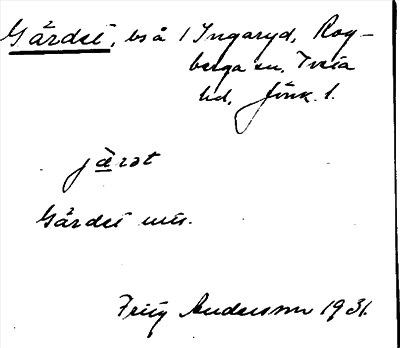 Gärdet, bs å 1 Ingaryd, Rog-
berga sn, Tveta
hd, Jönk. l.
järət
Gärdet uns.
Fritz Andersson 1931.